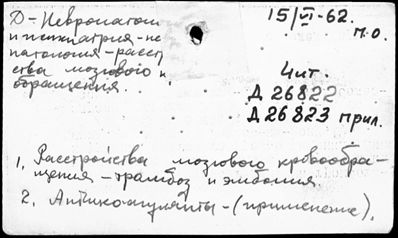 Д-Невропатол
и психиатрия-не
патология-расст
ства мозгового к
обращения.
15/VI-62.
м.о.
Чит.
Д 26822
Д 26823 прил.
1. Расстройства мозгового кровообра-
щения-тромбоз и эмболия.
2. Антикоагулянты-(применение).